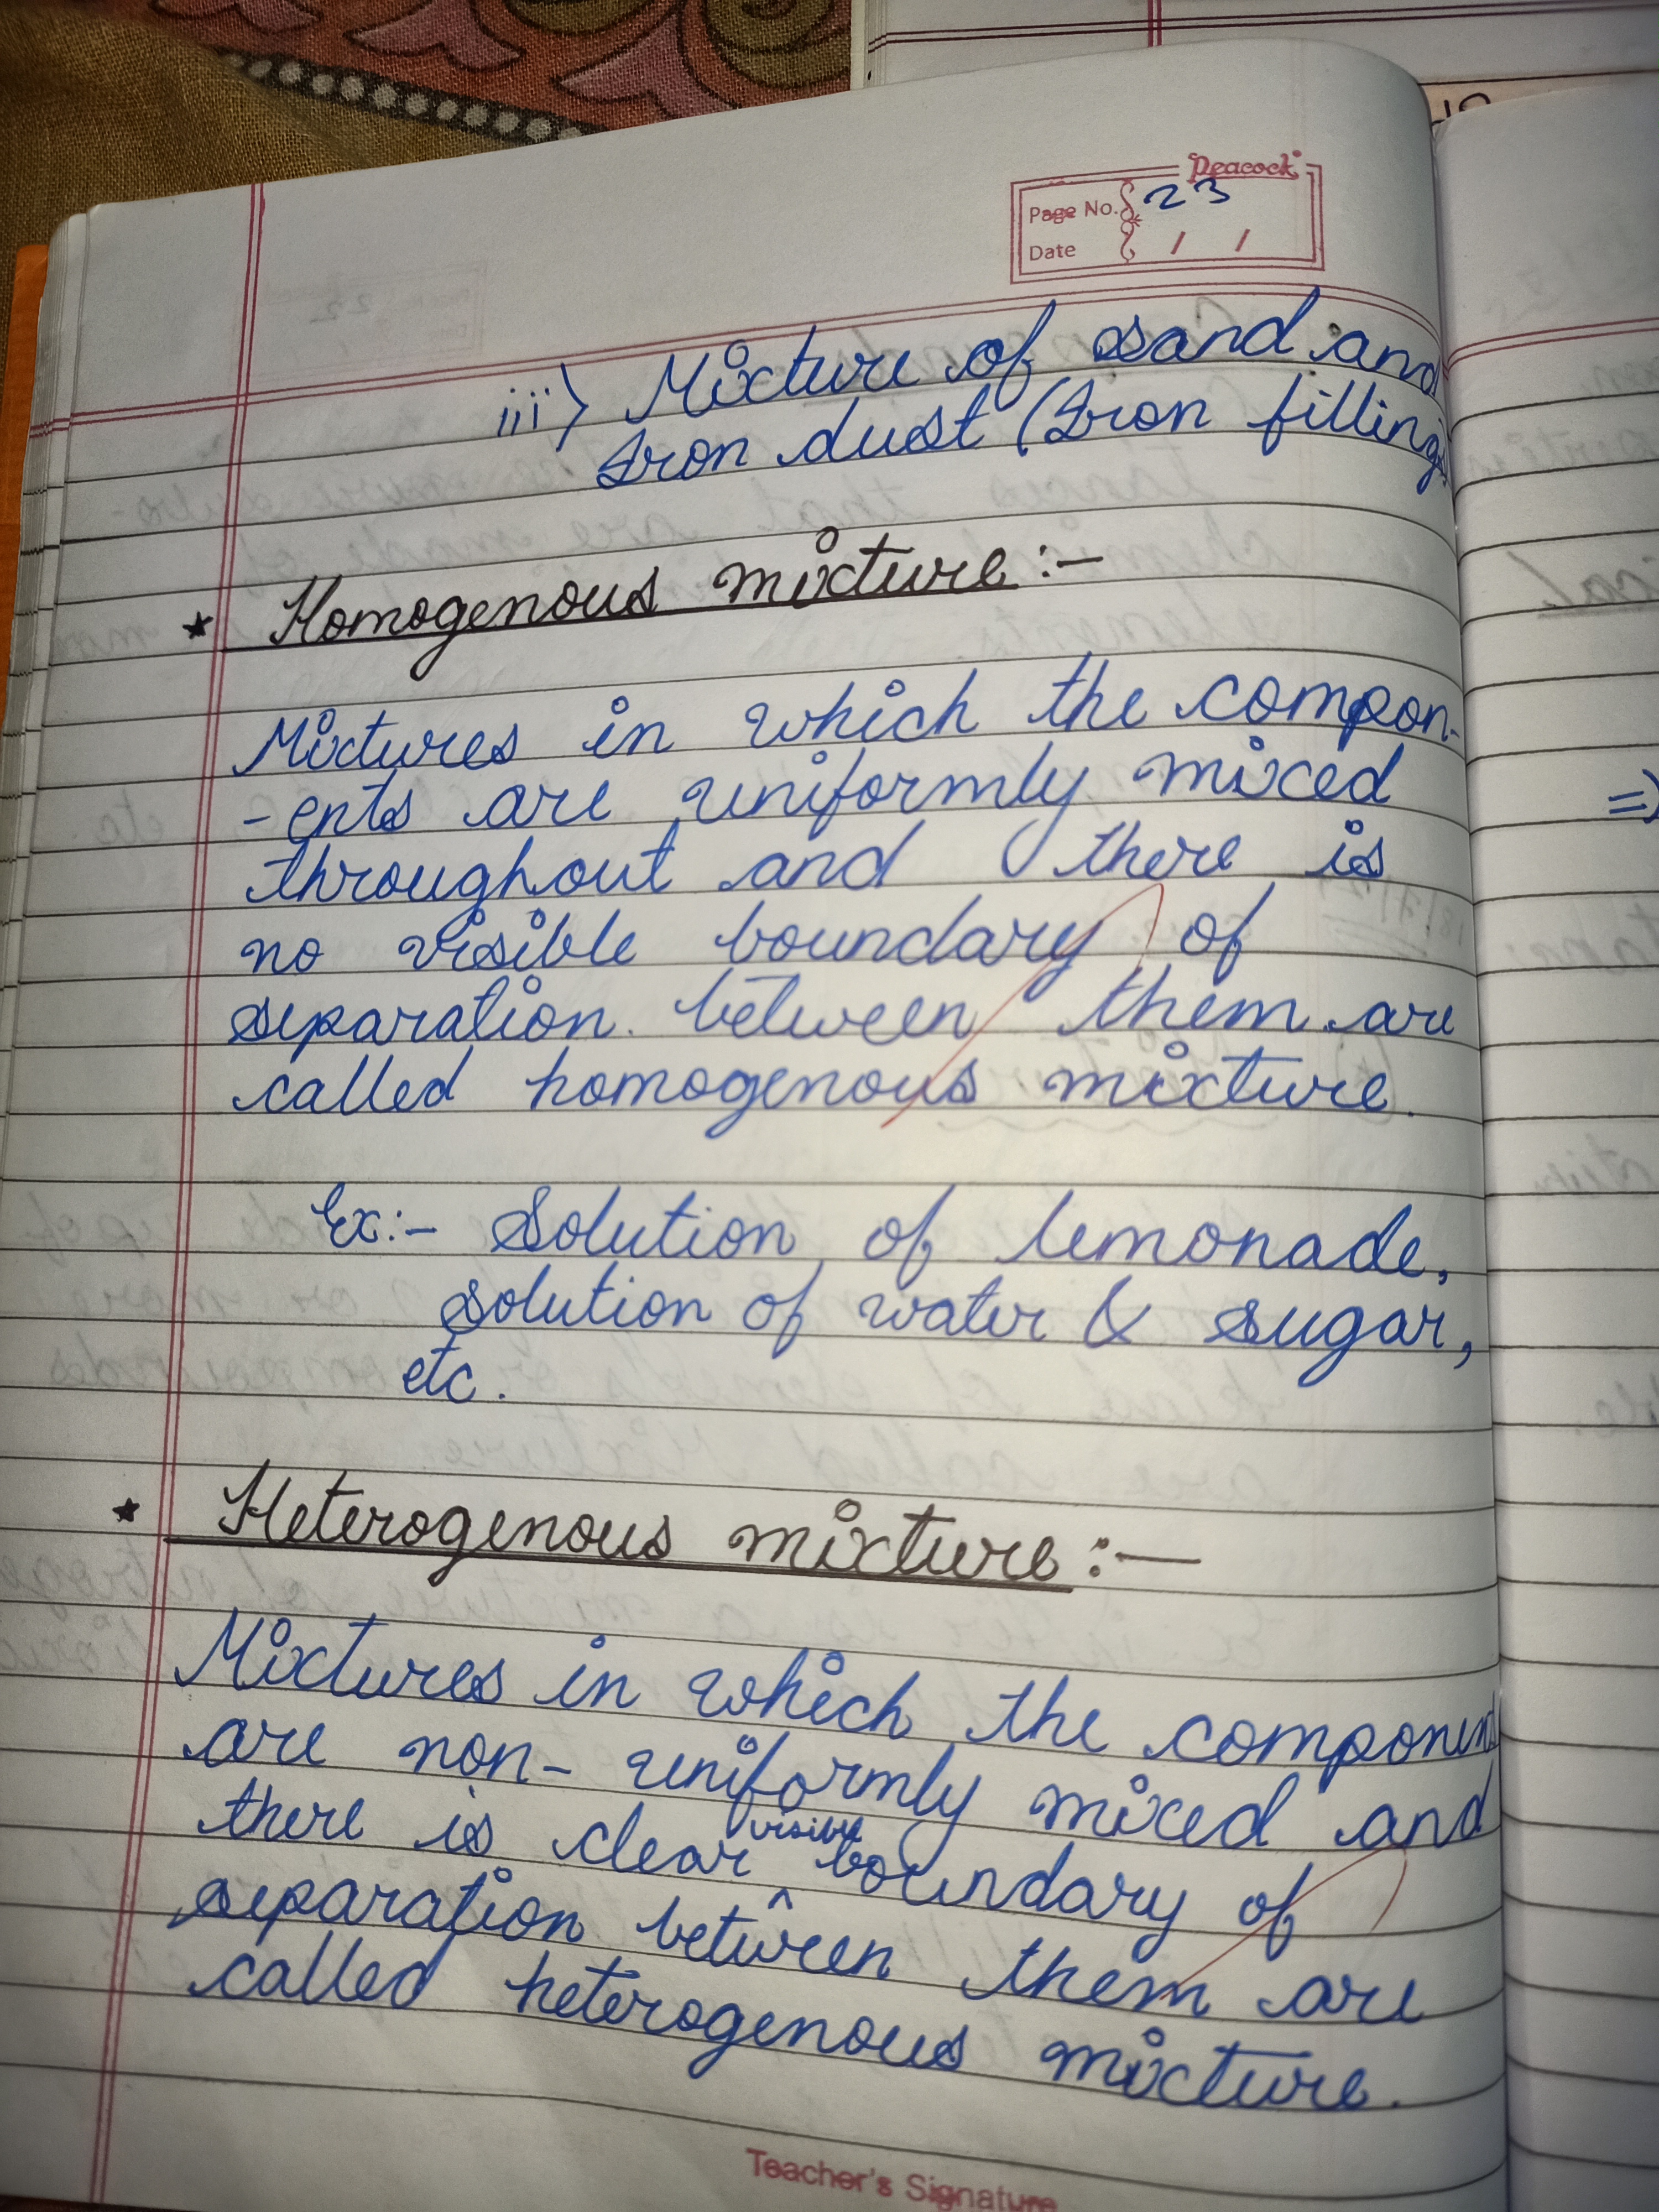 Peacock
Page No. 23
Date / /
iii) Mixture of sand and
Iron dust (Iron fillings
* Homogenous mixture :-
Mixtures in which the compon-
- ents are uniformly mixed
throughout and there is
no visible boundary of
separation between them are
called homogenous mixture.
Ex:- Solution of lemonade,
solution of water & sugar,
etc.
* Heterogenous mixture :-
Mixtures in which the components
are non- uniformly mixed and
visible
there is clear ^ boundary of
separation between them are
called heterogenous mixture.
Teacher's Signature